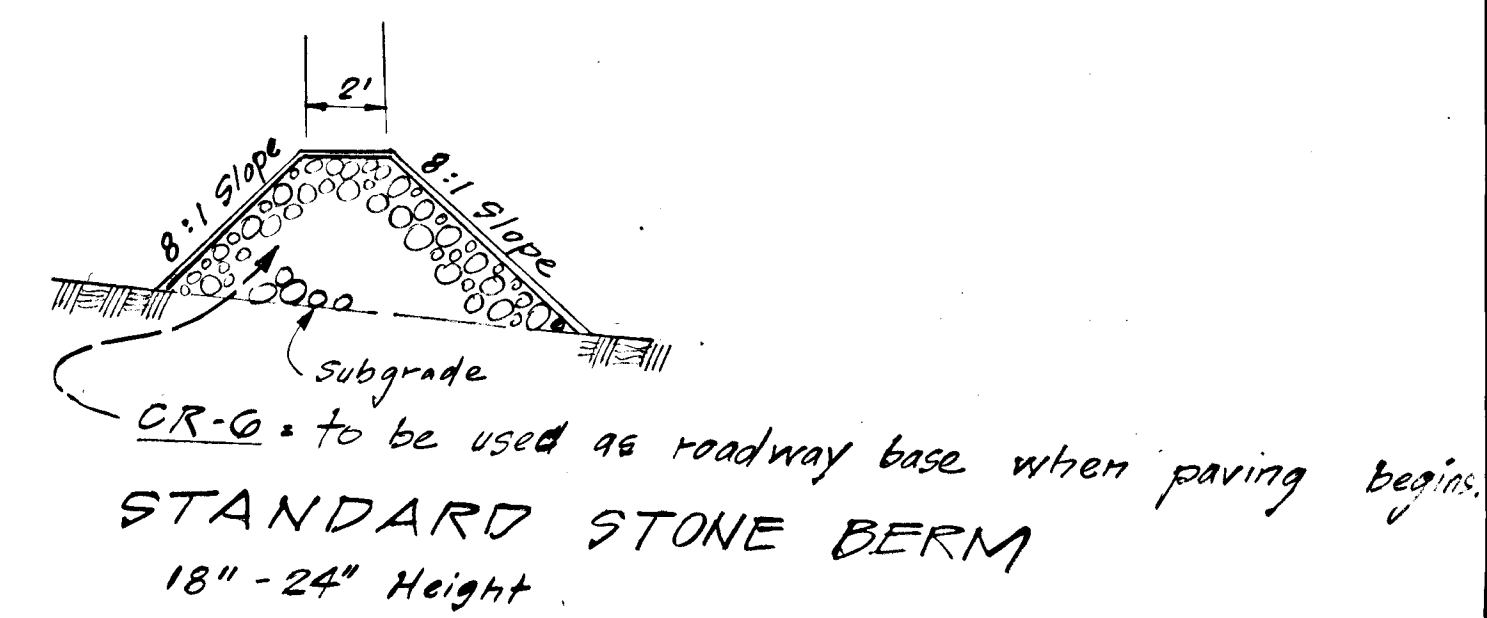 2'
8:1 Slope
8:1 Slope
Subgrade
CR-6 : to be used as roadway base when paving begins.
STANDARD STONE BERM
18" - 24" Height